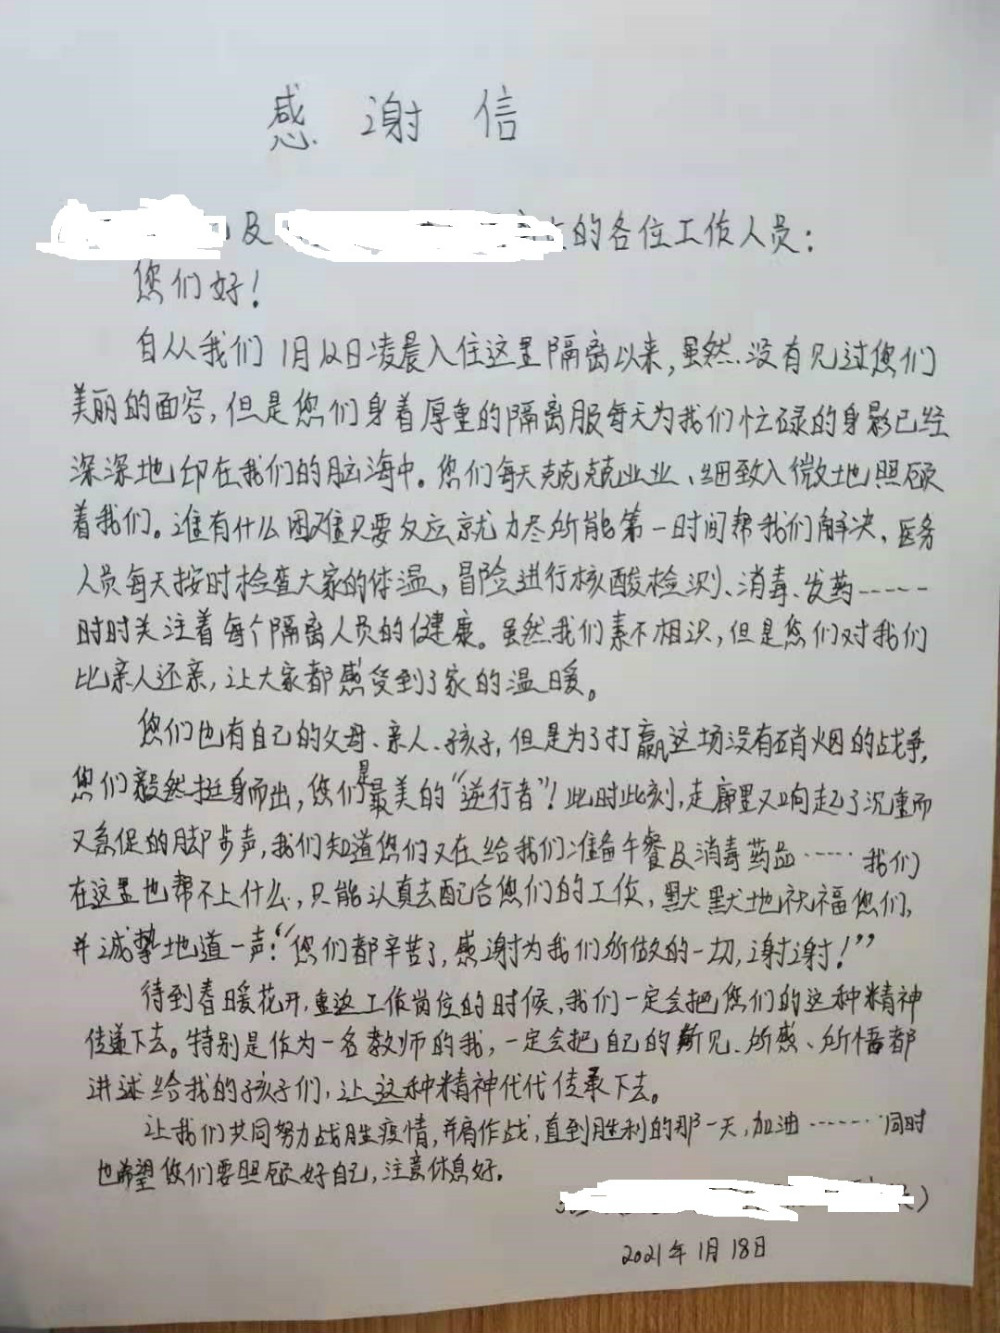 感谢信
及 的各位工作人员：
您们好！
自从我们1月12日凌晨入住这里隔离以来，虽然没有见过您们
美丽的面容，但是您们身着厚重的隔离服每天为我们忙碌的身影已经
深深地印在我们的脑海中。您们每天兢兢业业、细致入微地照顾
着我们。谁有什么困难只要反应就力尽所能第一时间帮我们解决，医务
人员每天按时检查大家的体温，冒险进行核酸检测、消毒、发药……
时时关注着每个隔离人员的健康。虽然我们素不相识，但是您们对我们
比亲人还亲，让大家都感受到了家的温暖。
您们也有自己的父母、亲人、孩子，但是为了打赢这场没有硝烟的战争，
您们毅然挺身而出，您们是最美的“逆行者”！此时此刻，走廊里又响起了沉重而
又急促的脚步声，我们知道您们又在给我们准备午餐及消毒药品……我们
在这里也帮不上什么，只能认真去配合您们的工作，默默地祝福您们，
并诚挚地道一声：“您们都辛苦了，感谢为我们所做的一切，谢谢！”
待到春暖花开，重返工作岗位的时候，我们一定会把您们的这种精神
传递下去。特别是作为一名教师的我，一定会把自己的所见、所感、所悟都
讲述给我的孩子们，让这种精神代代传承下去。
让我们共同努力战胜疫情，并肩作战，直到胜利的那一天，加油……同时
也希望您们要照顾好自己，注意休息好。
）
2021年1月18日